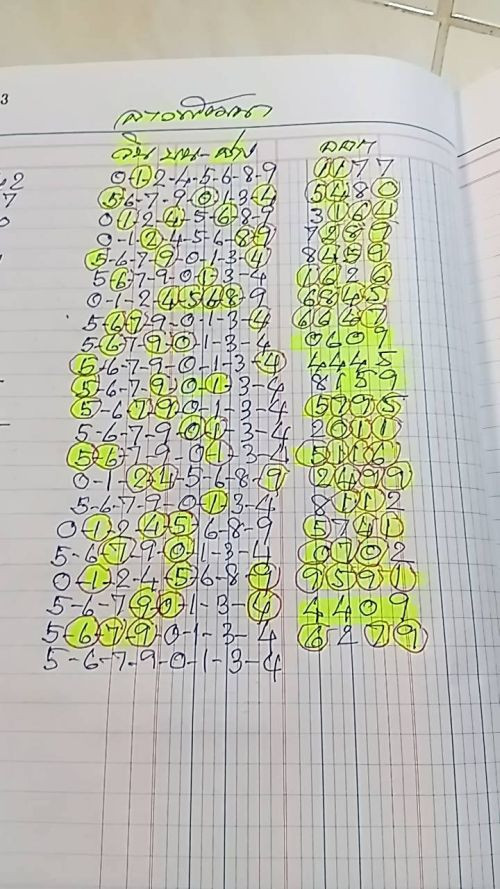 3
ลาวพัฒนา
วิน บน-ล่าง ออก
42 0-1-2-4-5-6-8-9 1177
7 5-6-7-9-0-1-3-4 5480
0 0-1-2-4-5-6-8-9 3164
0-1-2-4-5-6-8-9 7289
5-6-7-9-0-1-3-4 8459
5-6-7-9-0-1-3-4 1626
0-1-2-4-5-6-8-9 6845
5-6-7-9-0-1-3-4 6647
5-6-7-9-0-1-3-4 0609
5-6-7-7-0-1-3-4 4445
5-6-7-9-0-1-3-4 8159
5-6-7-9-0-1-3-4 5795
5-6-7-9-0-1-3-4 2011
5-6-7-9-0-1-3-4 5116
0-1-2-4-5-6-8-9 2499
5-6-7-9-0-1-3-4 8112
0-1-2-4-5-6-8-9 5741
5-6-7-9-0-1-3-4 0702
0-1-2-4-5-6-8-9 9591
5-6-7-9-0-1-3-4 4409
5-6-7-9-0-1-3-4 6279
5-6-7-9-0-1-3-4